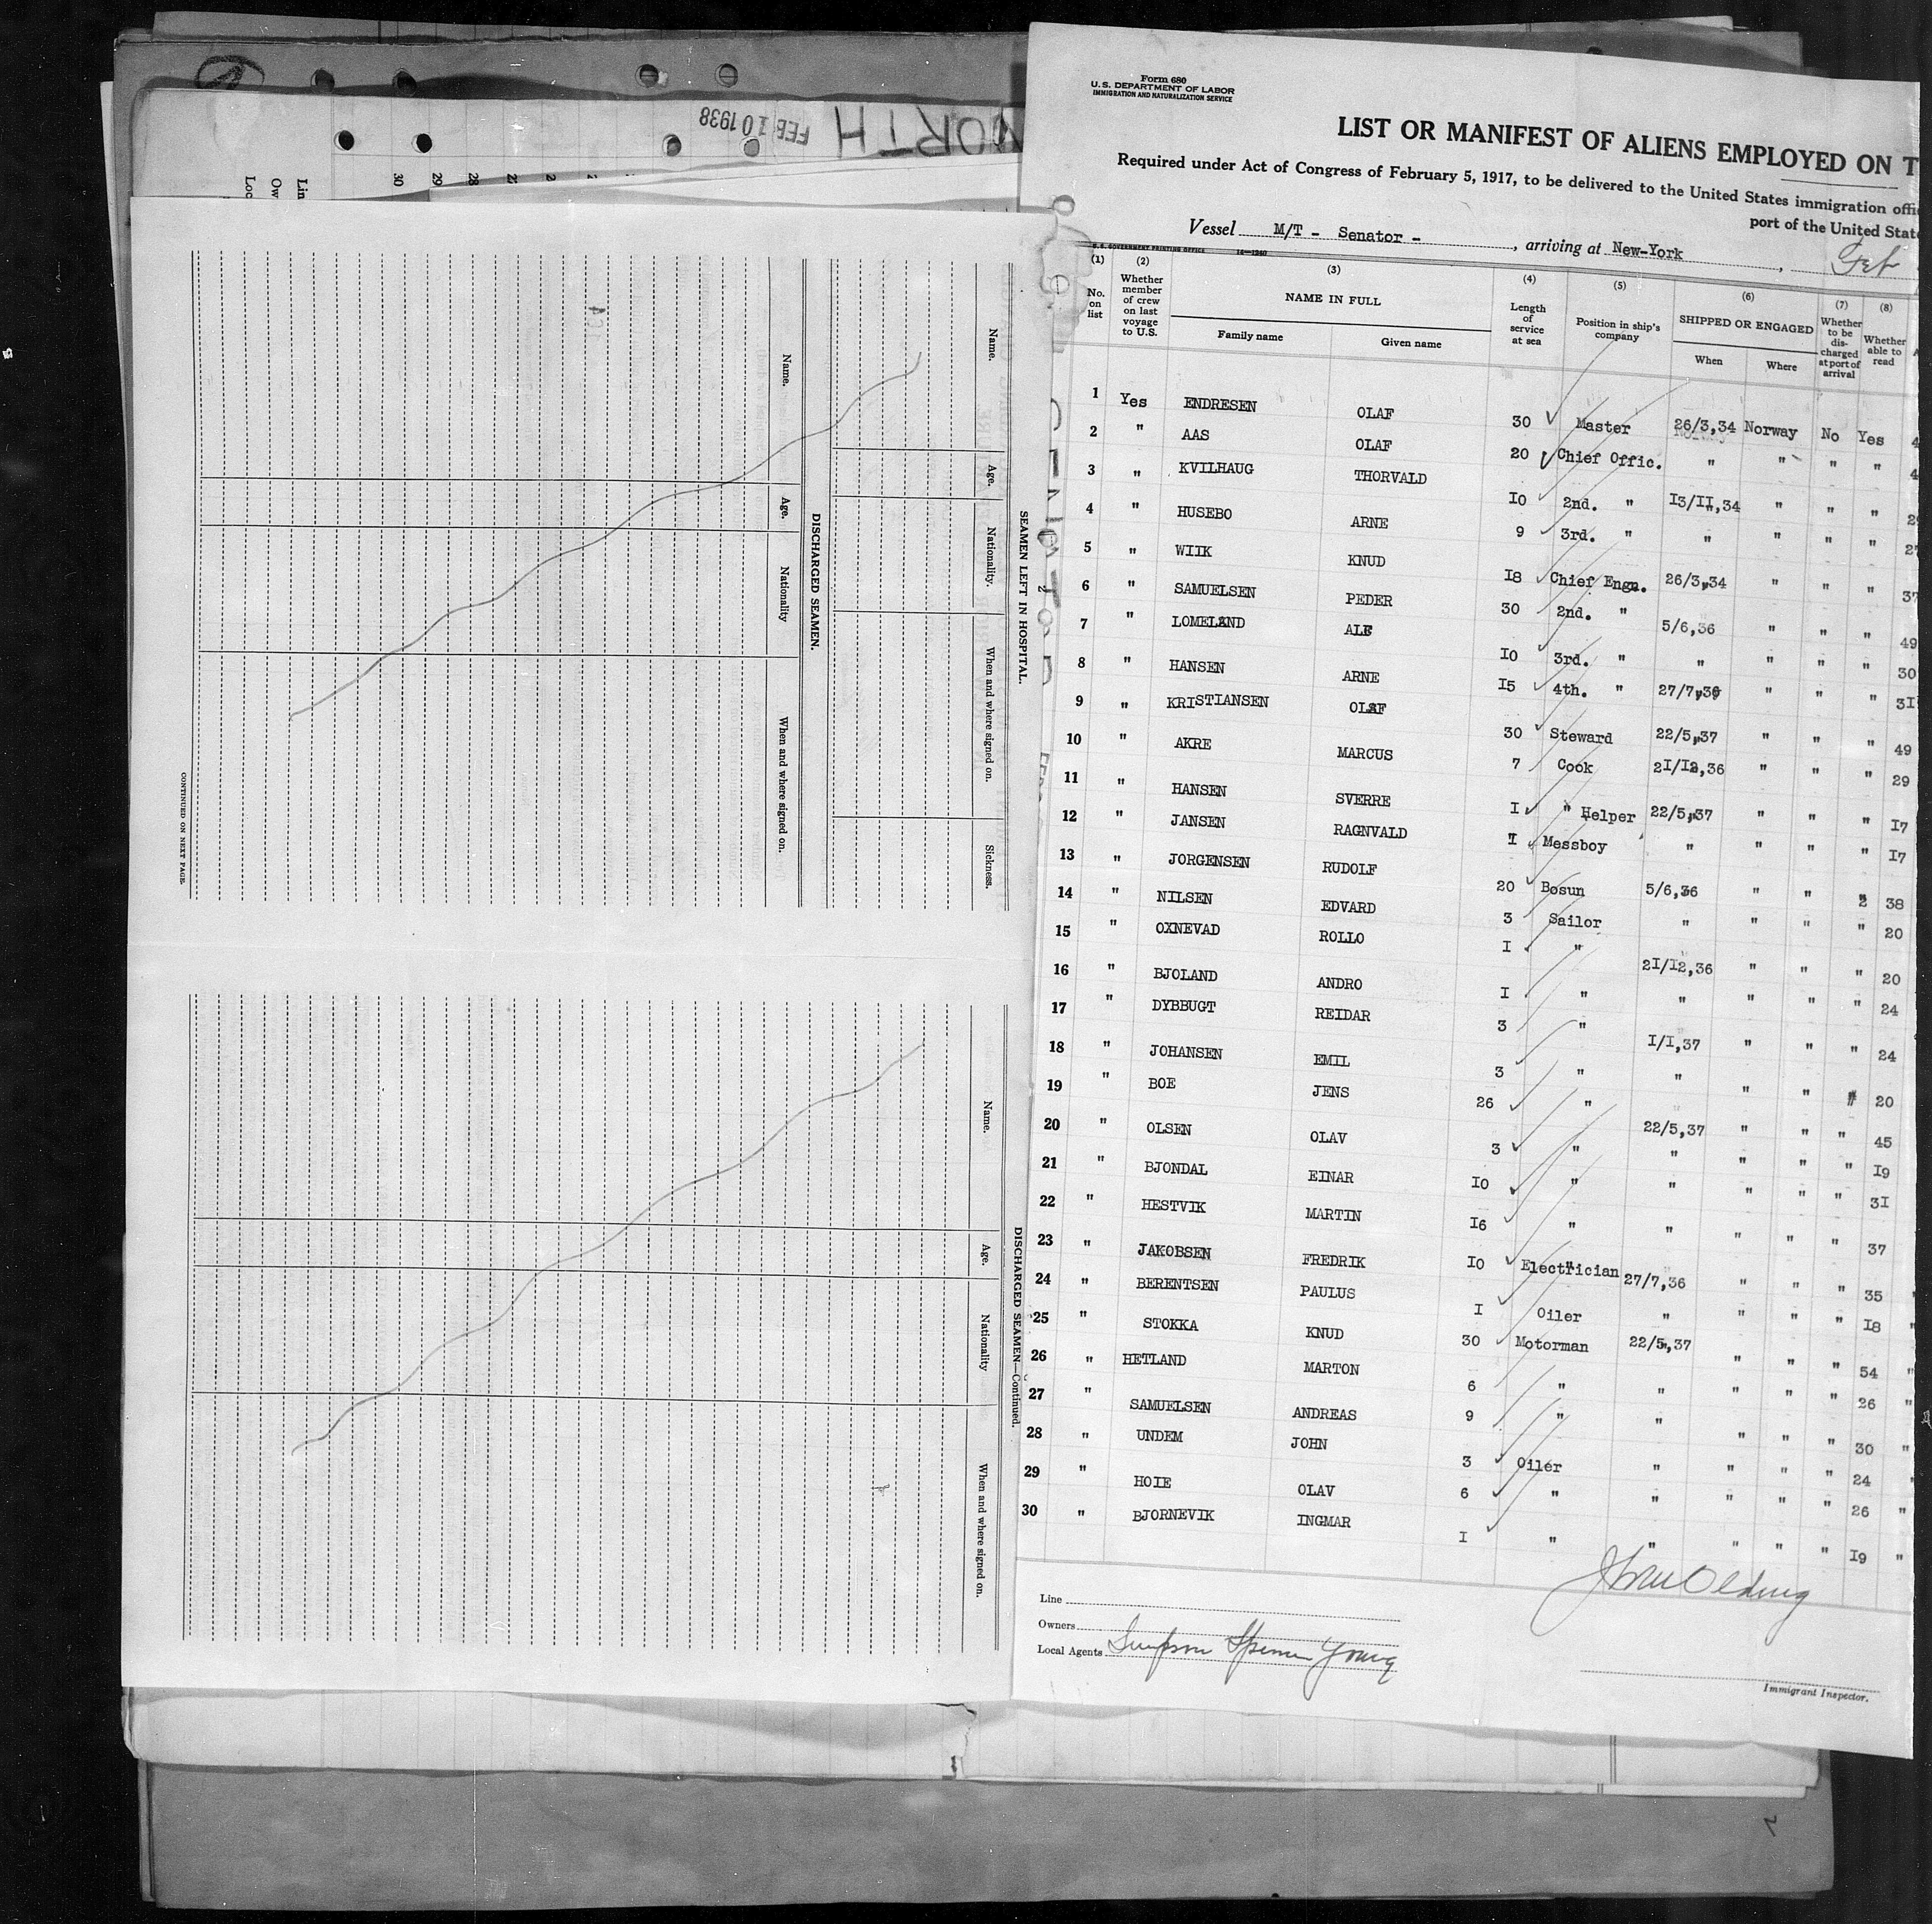 FEB 10 1938
30 29 28
Form 680
U.S. DEPARTMENT OF LABOR
IMMIGRATION AND NATURALIZATION SERVICE
LIST OR MANIFEST OF ALIENS EMPLOYED ON T
Required under Act of Congress of February 5, 1917, to be delivered to the United States immigration offi
port of the United State
Vessel M/T - Senator - , arriving at New-York , Feb
U.S. GOVERNMENT PRINTING OFFICE
(1) (2) (3) (4) (5) (6) (7) (8)
No. on list
Whether member of crew on last voyage to U.S.
NAME IN FULL
Family name Given name
Length of service at sea
Position in ship's company
SHIPPED OR ENGAGED
When Where
Whether to be discharged at port of arrival
Whether able to read
1 Yes ENDRESEN OLAF 30 Master 26/3,34 Norway No Yes
2 " AAS OLAF 20 Chief Offic. " " " "
3 " KVILHAUG THORVALD I0 2nd. " I3/II,34 " " "
4 " HUSEBO ARNE 9 3rd. " " " " "
5 " WIIK KNUD I8 Chief Engn. 26/3,34 " " " 37
6 " SAMUELSEN PEDER 30 2nd. " 5/6,36 " " " 49
7 " LOMELAND ALF I0 3rd. " " " " " 30
8 " HANSEN ARNE I5 4th. " 27/7,36 " " " 3I
9 " KRISTIANSEN OLAF 30 Steward 22/5,37 " " " 49
10 " AKRE MARCUS 7 Cook 2I/I2,36 " " " 29
11 " HANSEN SVERRE I " Helper 22/5,37 " " " I7
12 " JANSEN RAGNVALD I Messboy " " " " I7
13 " JORGENSEN RUDOLF 20 Bosun 5/6,36 " " " 38
14 " NILSEN EDVARD 3 Sailor " " " " 20
15 " OXNEVAD ROLLO I " 2I/I2,36 " " " 20
16 " BJOLAND ANDRO I " " " " " 24
17 " DYBBUGT REIDAR 3 " I/I,37 " " " 24
18 " JOHANSEN EMIL 3 " " " " " 20
19 " BOE JENS 26 " 22/5,37 " " " 45
20 " OLSEN OLAV 3 " " " " " I9
21 " BJONDAL EINAR I0 " " " " " 3I
22 " HESTVIK MARTIN I6 " " " " " 37
23 " JAKOBSEN FREDRIK I0 Electrician 27/7,36 " " " 35
24 " BERENTSEN PAULUS I Oiler " " " " I8
25 " STOKKA KNUD 30 Motorman 22/5,37 " " " 54
26 " HETLAND MARTON 6 " " " " " 26
27 " SAMUELSEN ANDREAS 9 " " " " " 30
28 " UNDEM JOHN 3 Oiler " " " " 24
29 " HOIE OLAV 6 " " " " " 26
30 " BJORNEVIK INGMAR I " " " " " I9
Line
Owners
Local Agents Simpson Spence Young
Immigrant Inspector.
SEAMEN LEFT IN HOSPITAL.
Name. Age. Nationality. When and where signed on. Sickness.
DISCHARGED SEAMEN.
Name. Age. Nationality When and where signed on.
CONTINUED ON NEXT PAGE.
DISCHARGED SEAMEN—Continued.
Name. Age. Nationality When and where signed on.